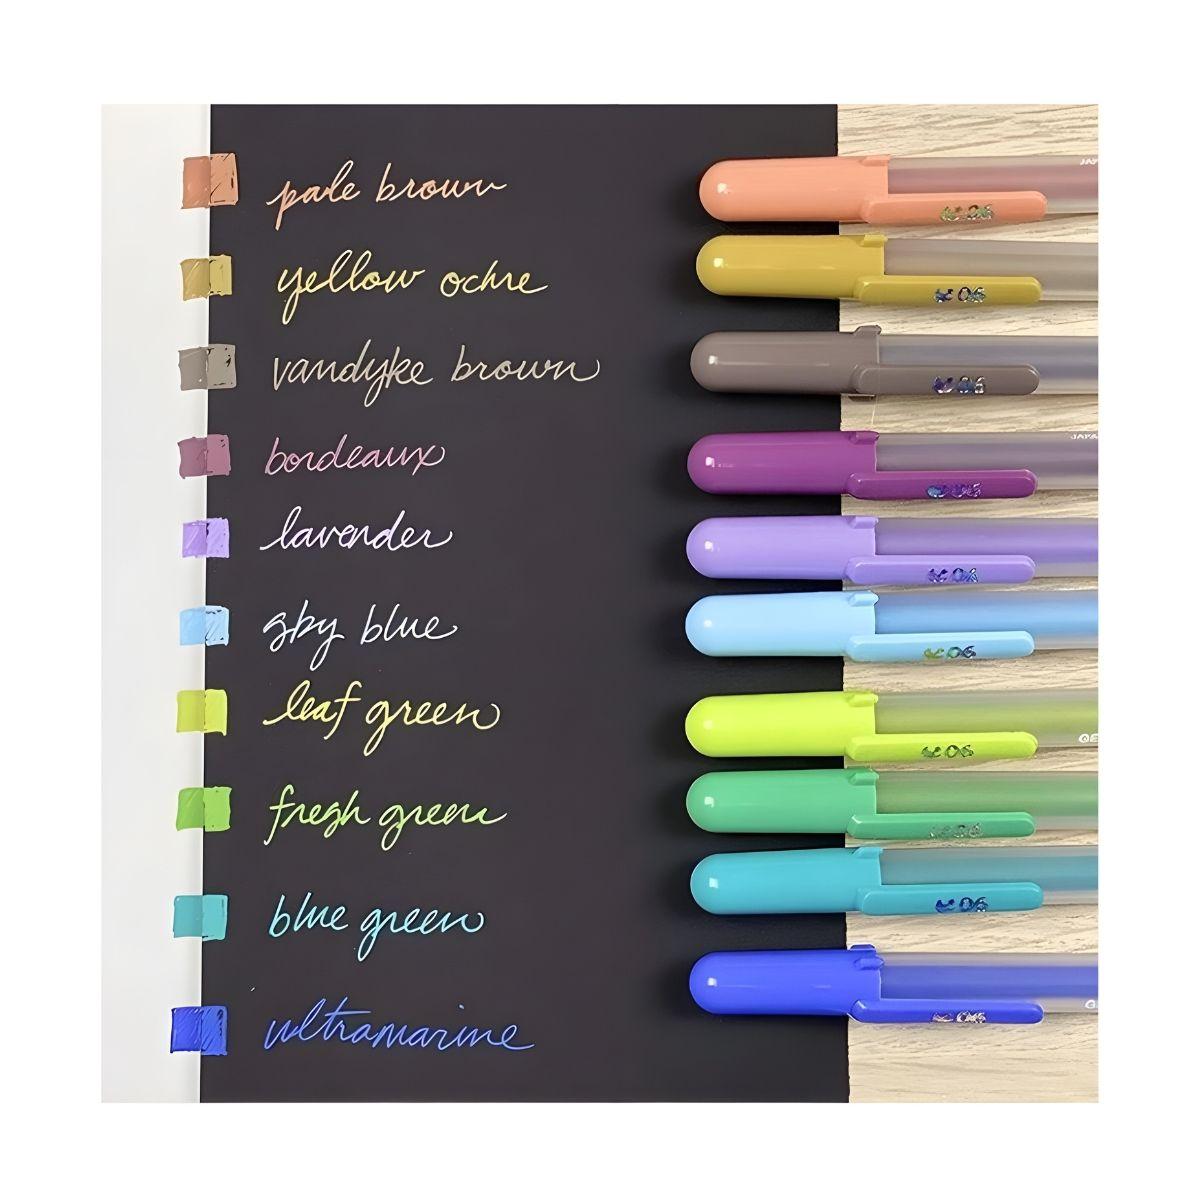 pale brown
JAPA
06
yellow ochre
06
vandyke brown
06
bordeaux
JAPA
06
lavender
06
sky blue
06
leaf green
GE
06
fresh green
06
blue green
06
ultramarine
G
06